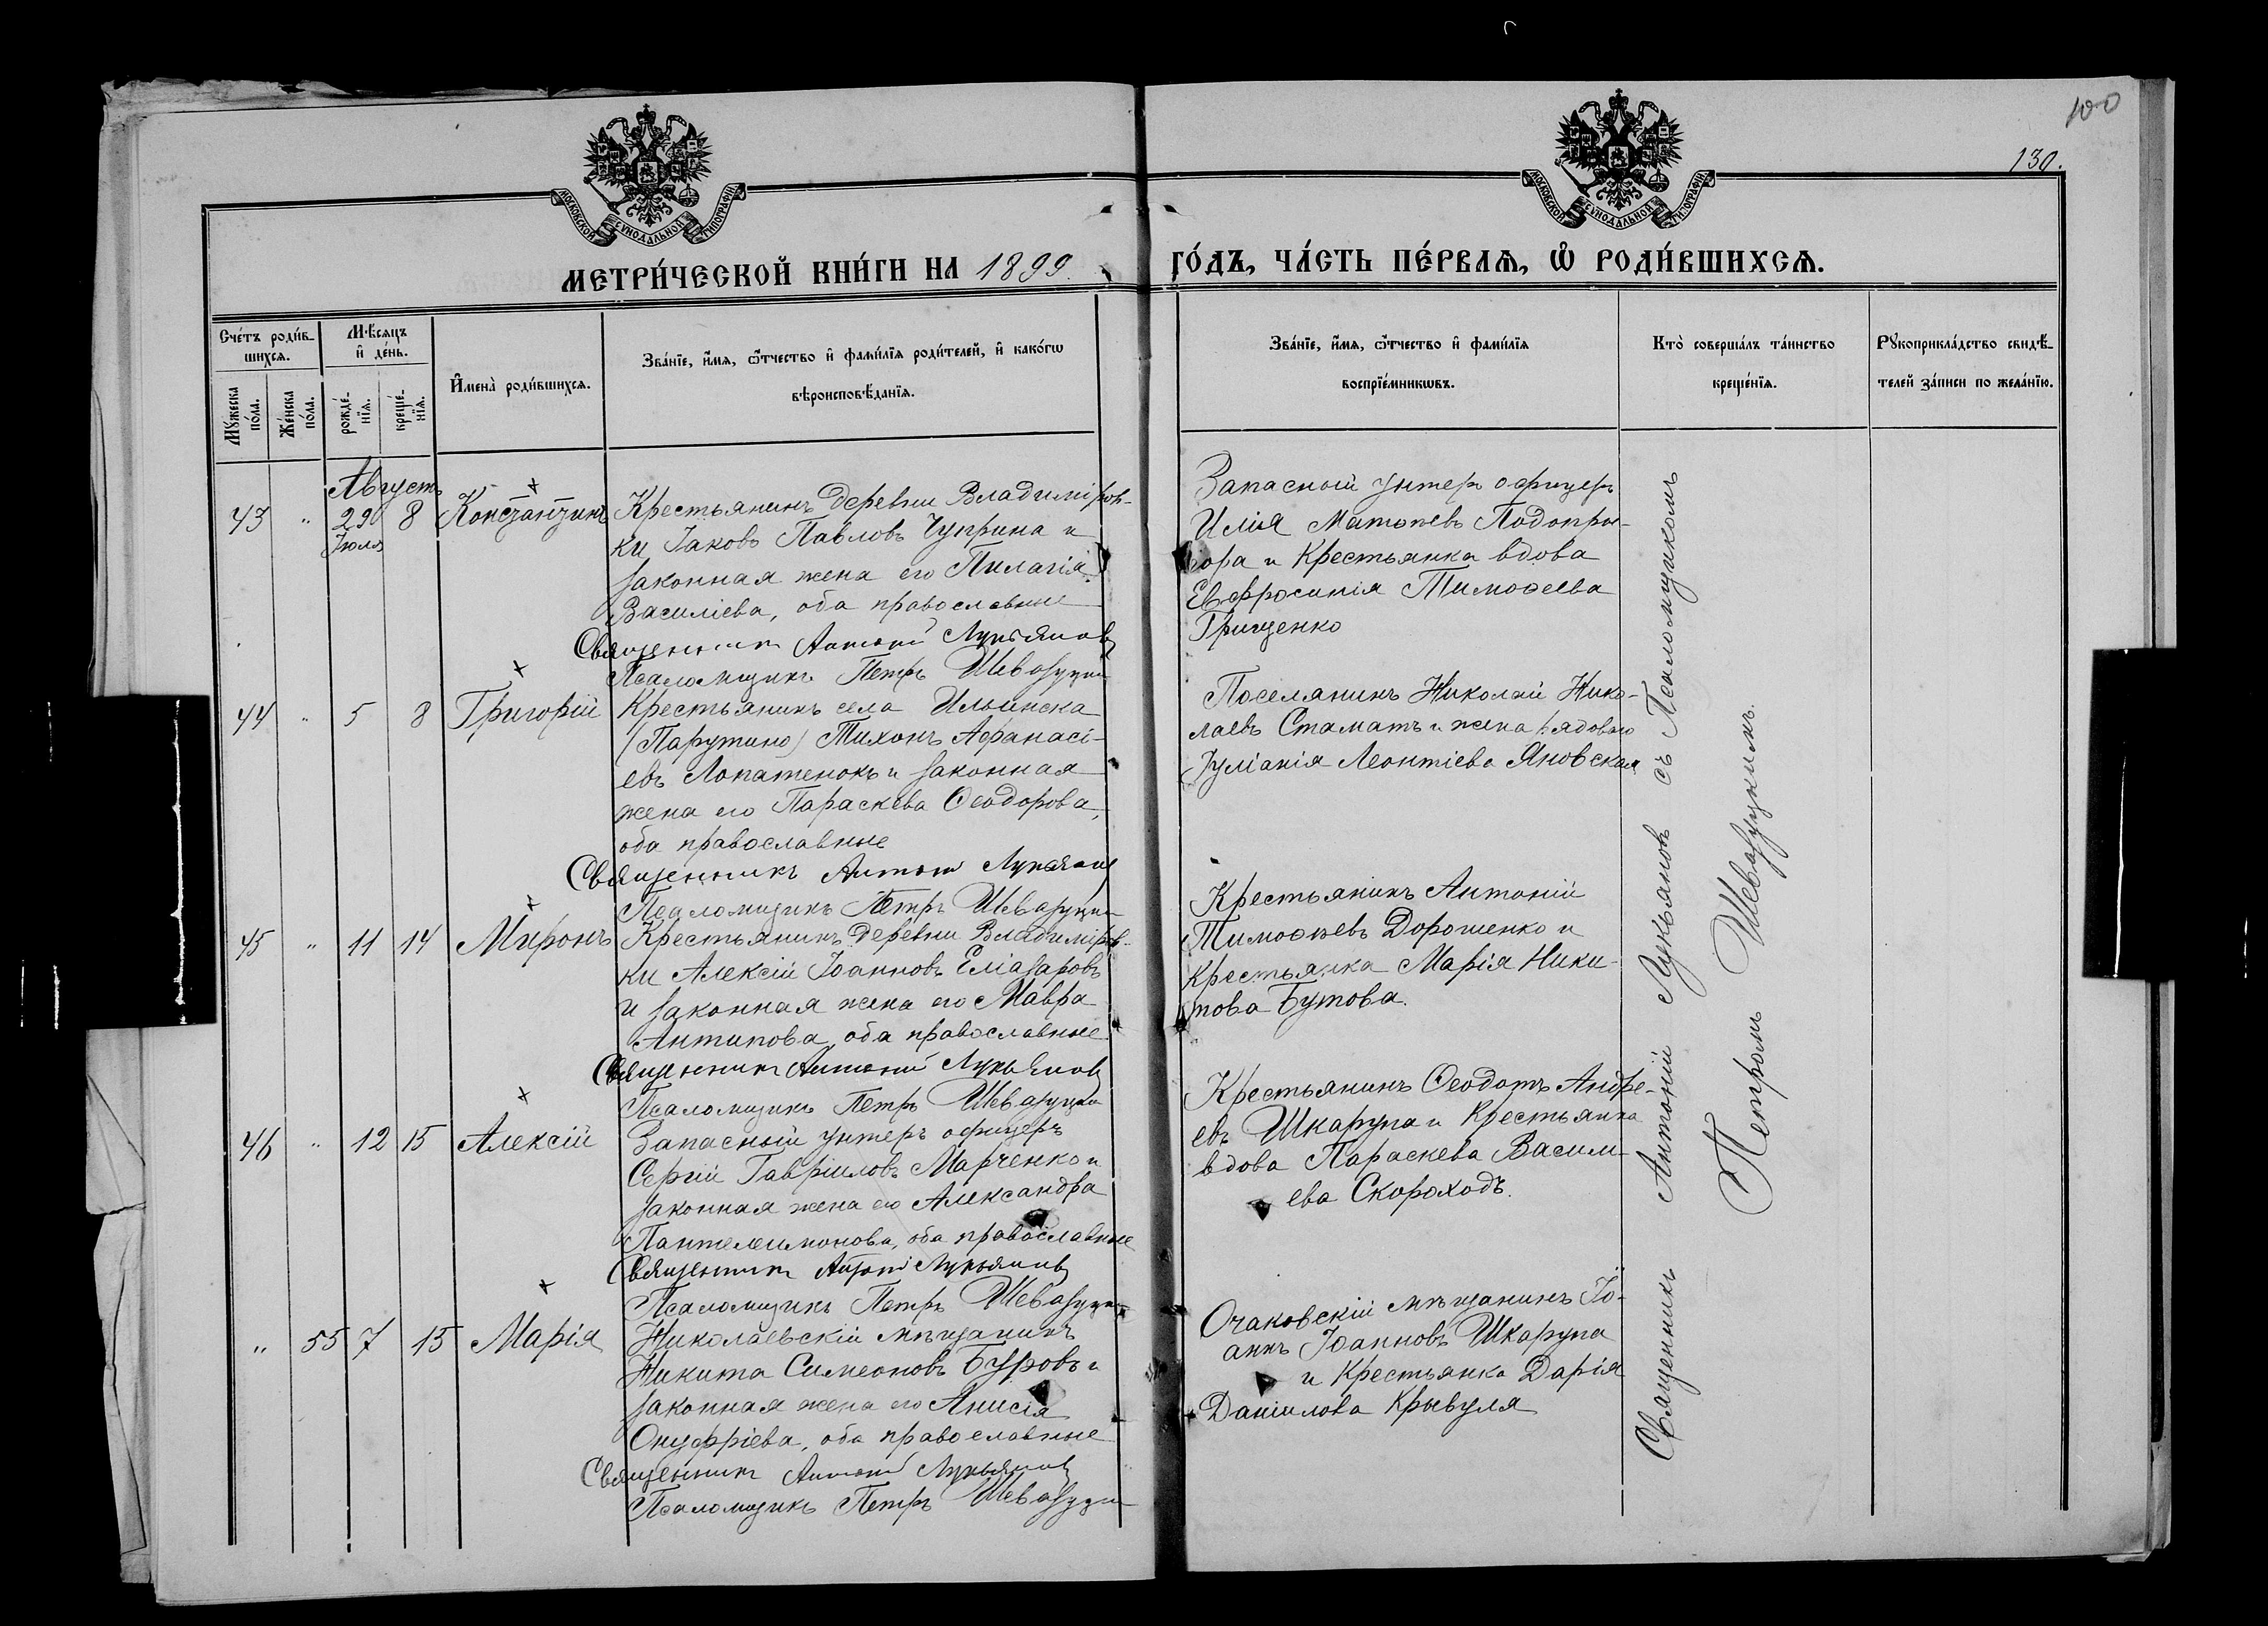 100
130.
МОСКОВСКОЙ СѴНОДАЛЬНОЙ ТИПОГРАФІИ
МОСКОВСКОЙ СѴНОДАЛЬНОЙ ТИПОГРАФІИ
МЕТРИ́ЧЕСКОЙ КНИ́ГИ НА 1899. ГО́ДЪ, ЧА́СТЬ ПЕ́РВАѦ, Ѡ РОДИ́ВШИХСѦ.
Сче́тъ роди́в-
шихсѧ.
Мꙋ́жеска
по́ла.
Же́нска
по́ла.
Мѣ́сѧцъ
и҆ де́нь.
рожде́-
нїѧ.
креще́-
нїѧ.
И҆мена̀ роди́вшихсѧ.
Зва́нїе, и҆́мѧ, ѻ҆́тчество и҆ фами́лїѧ роди́телей, и҆ како́гѡ
вѣроисповѣ́данїѧ.
Зва́нїе, и҆́мѧ, ѻ҆́тчество и҆ фами́лїѧ
воспрїе́мникѡвъ.
Кто̀ соверша́лъ та́инство
креще́нїѧ.
Рꙋкоприкла́дство свидѣ́-
телей за́писи по жела́нїю.
Августъ
43 " 29 8 Константинъ
Іюля
Крестьянинъ деревни Владиміров-
ки Іаковъ Павловъ Чуприна и
законная жена его Пилагія
Василіева, оба православные
Священникъ Антоній Лукьяновъ
Псаломщикъ Петръ Шевазуцкій
Запасный унтеръ офицеръ
Илія Матѳѣевъ Подопри-
гора и Крестьянка вдова
Евфросинія Тимоѳеева
Грищенко
44 " 5 8 Григорій
Крестьянинъ села Ильинска
(Парутино) Тихонъ Афанасі-
евъ Лопатенокъ и законная
жена его Параскева Ѳеодорова,
оба православные
Священникъ Антоній Лукьяновъ
Псаломщикъ Петръ Шевазуцкій
Поселянинъ Николай Нико-
лаевъ Стаматъ и жена рядового
Іуліанія Леонтіева Яновская
45 " 11 14 Миронъ
Крестьянинъ деревни Владиміров-
ки Алексій Іоанновъ Еліазаровъ
и законная жена его Мавра
Антипова, оба православные
Священникъ Антоній Лукьяновъ
Псаломщикъ Петръ Шевазуцкій
Крестьянинъ Антоній
Тимоѳѣевъ Дорошенко и
Крестьянка Марія Ники-
това Бутова.
46 " 12 15 Алексій
Запасный унтеръ офицеръ
Сергій Гавріиловъ Марченко и
законная жена его Александра
Пантелеимонова, оба православные
Священникъ Антоній Лукьяновъ
Псаломщикъ Петръ Шевазуцкій
Крестьянинъ Ѳеодотъ Андре-
евъ Шкарупа и Крестьянка
вдова Параскева Васили-
ева Скороходъ.
" 55 7 15 Марія
Николаевскій мѣщанинъ
Никита Симеоновъ Буровъ и
законная жена его Анисія
Онуфріева, оба православные
Священникъ Антоній Лукьяновъ
Псаломщикъ Петръ Шевазуцкій
Очаковскій мѣщанинъ Іо-
аннъ Іоанновъ Шкарупа
и Крестьянка Дарія
Даніилова Крывуля
Священникъ Антоній Лукьяновъ съ Псаломщикомъ
Петромъ Шевазуцкимъ.